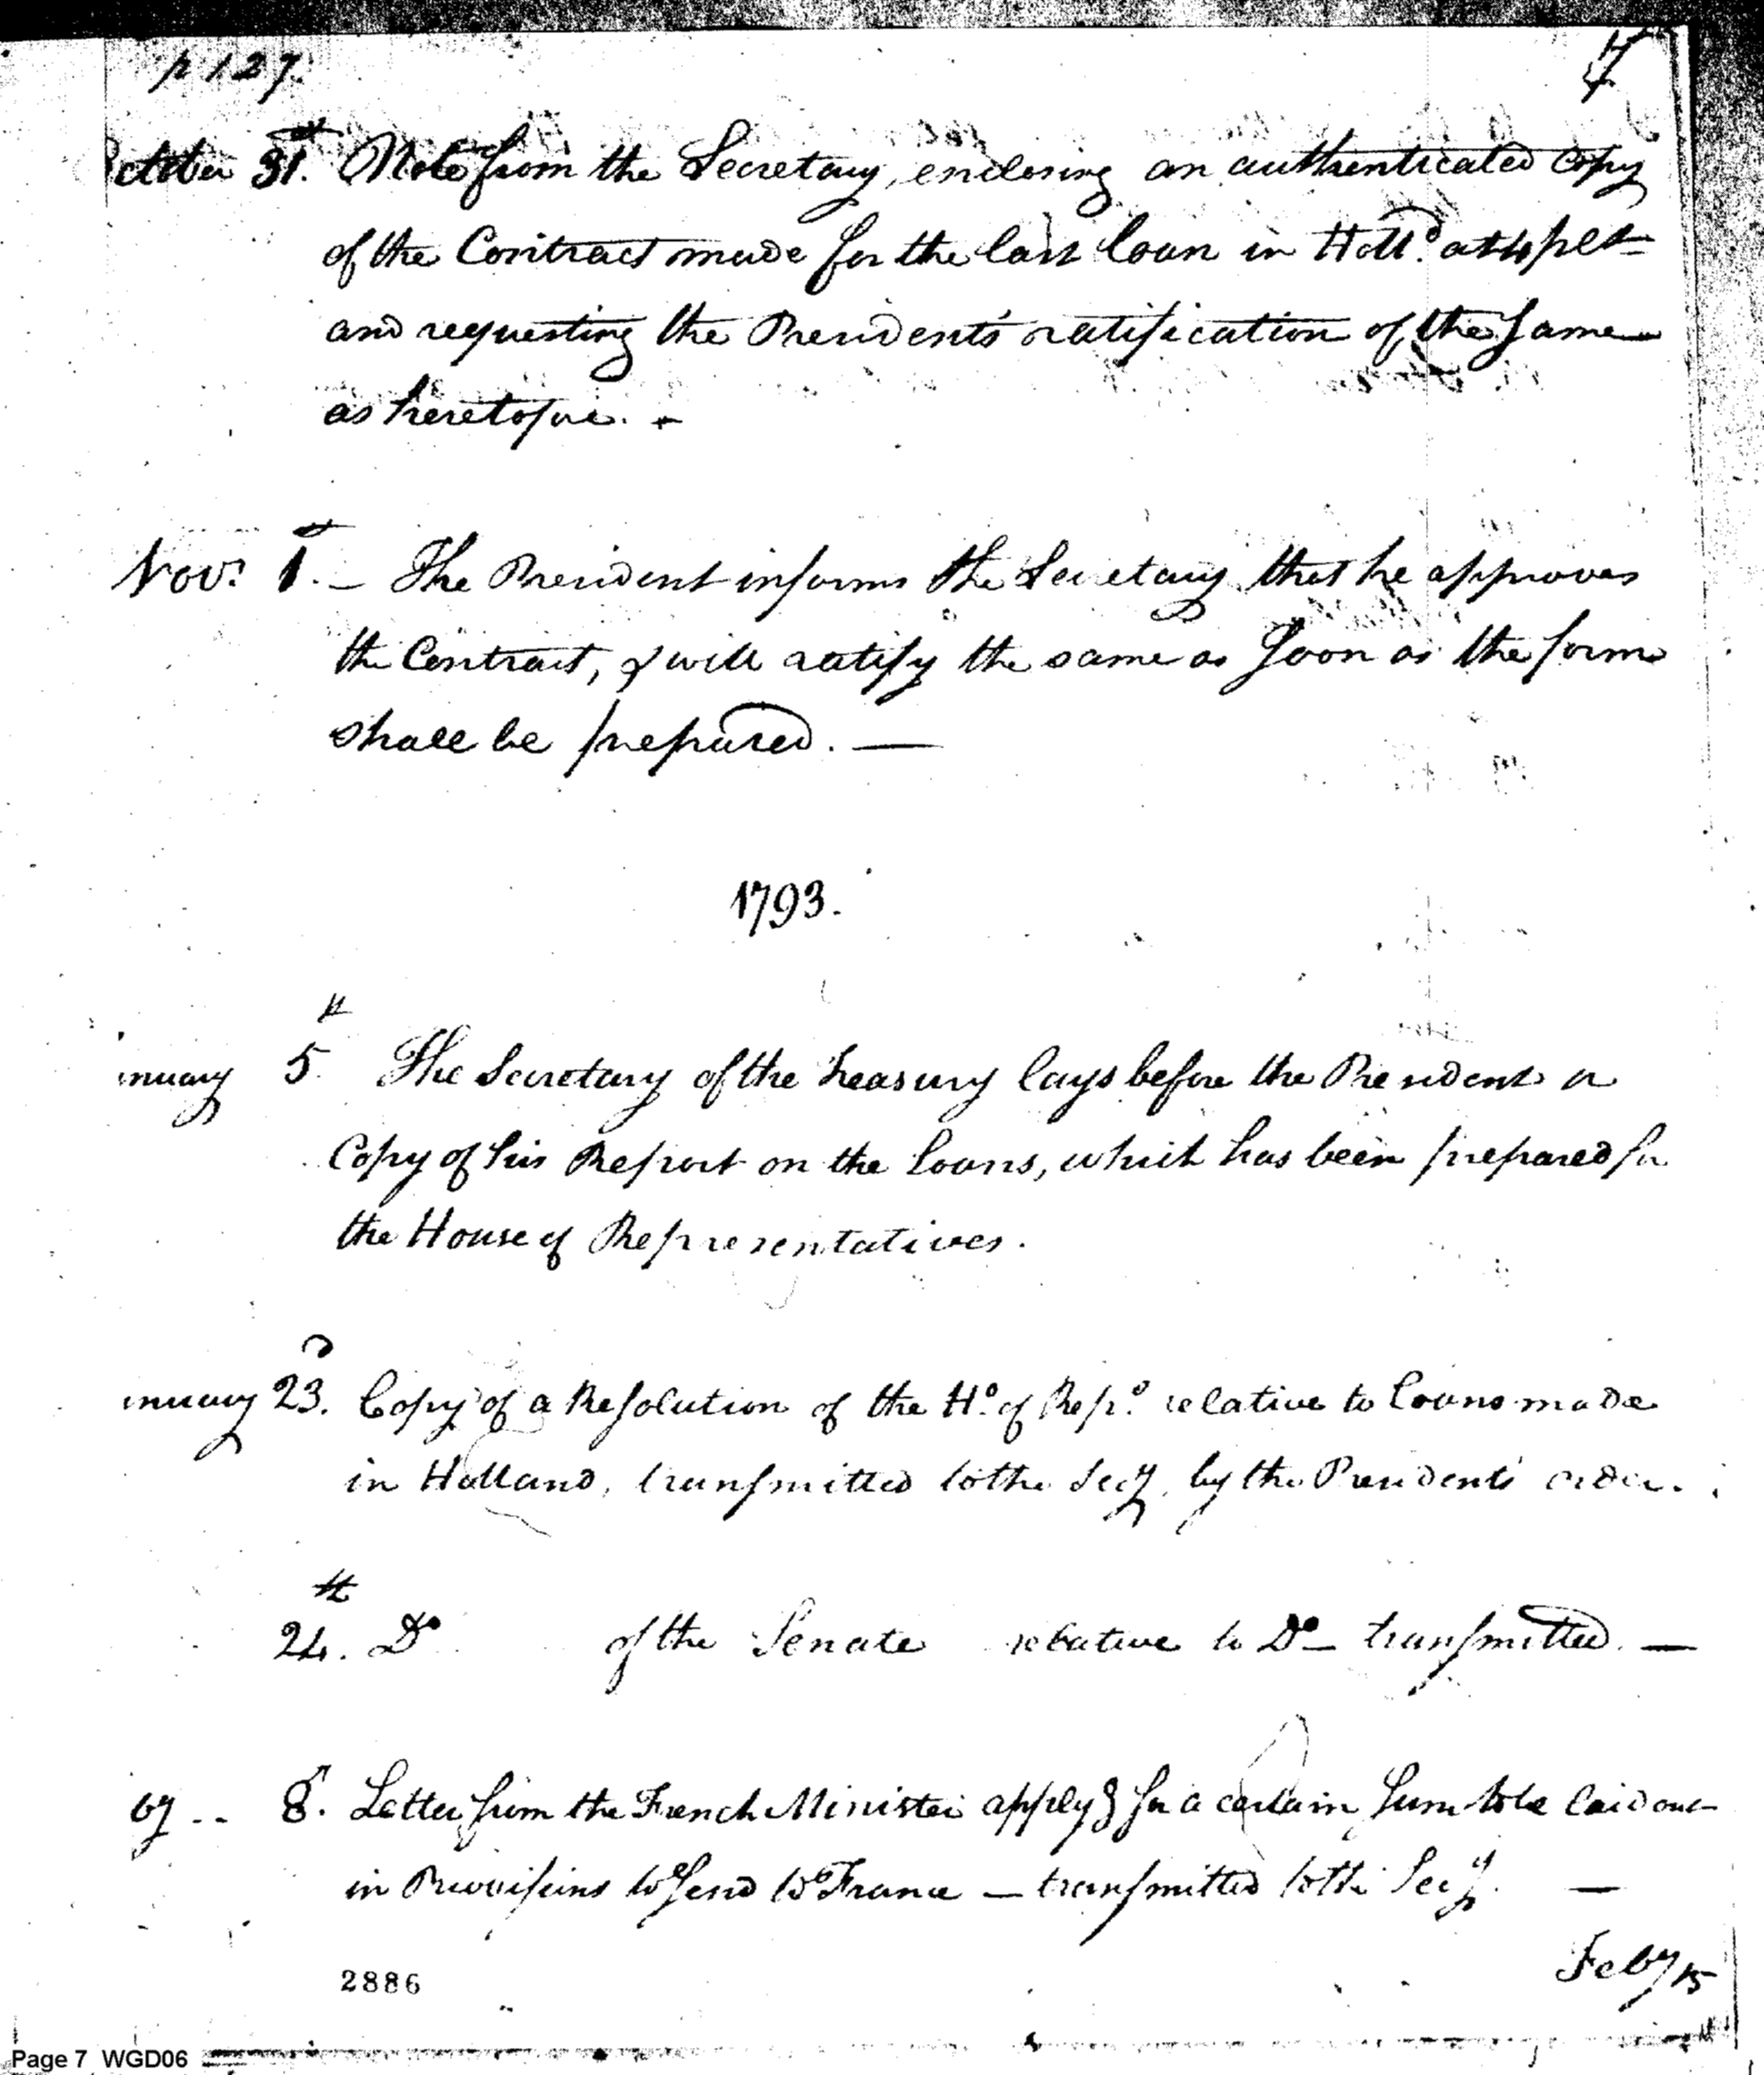 p 127.
7
October 31st. Note from the Secretary, enclosing an authenticated Copy
of the Contract made for the last loan in Holld. at 4 pct
and requesting the President's ratification of the same
as heretofore. —
Novr. 1st. — The President informs the Secretary that he approves
the Contract, & will ratify the same as soon as the form
shall be prepared. —
1793.
inuary 5th. The Secretary of the Treasury lays before the President a
Copy of his Report on the loans, which has been prepared for
the House of Representatives.
inuary 23d. Copy of a Resolution of the Ho. of Repr. relative to Loans made
in Holland, transmitted to the Secy. by the President's order.
24th. Do of the Senate relative to Do — transmitted. —
by .. 8. Letter from the French Minister applyg for a certain sum to be laid out
in Provisions to send to France — transmitted to the Secy. —
Feby 15
2886
Page 7 WGD06